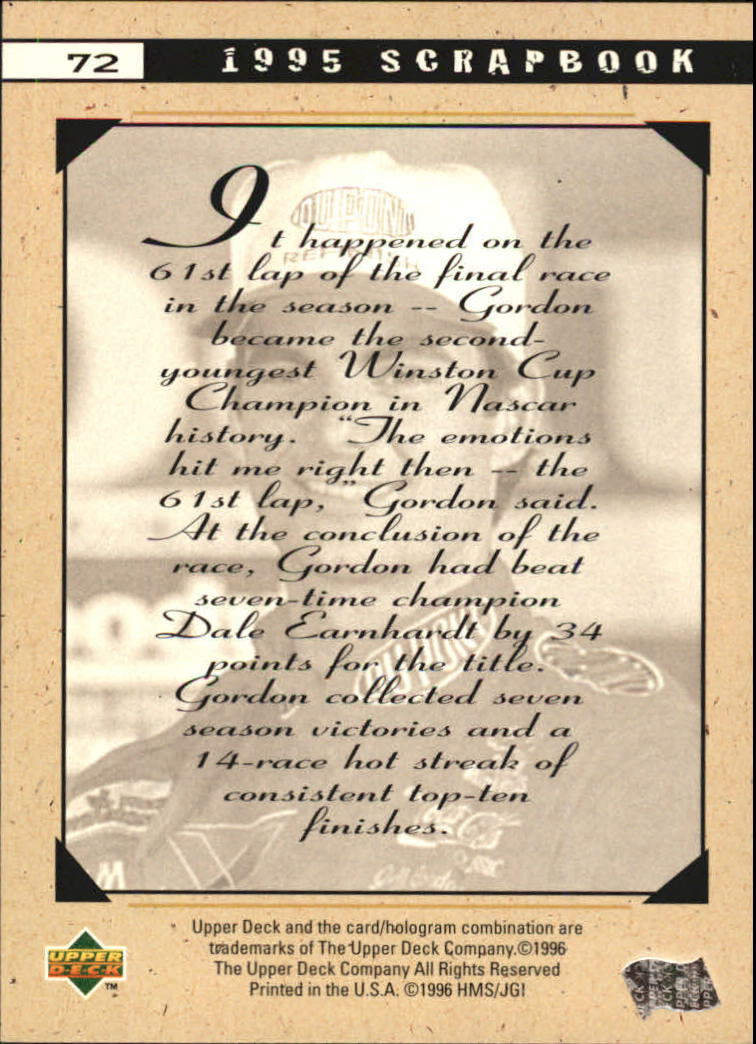 72
1995 SCRAPBOOK
DUPONT
REFINISH
It happened on the
61st lap of the final race
in the season -- Gordon
became the second-
youngest Winston Cup
Champion in Nascar
history. "The emotions
hit me right then -- the
61st lap," Gordon said.
At the conclusion of the
race, Gordon had beat
seven-time champion
Dale Earnhardt by 34
points for the title.
Gordon collected seven
season victories and a
14-race hot streak of
consistent top-ten
finishes.
UPPER
D·E·C·K
TM
Upper Deck and the card/hologram combination are
trademarks of The Upper Deck Company.©1996
The Upper Deck Company All Rights Reserved
Printed in the U.S.A. ©1996 HMS/JGI